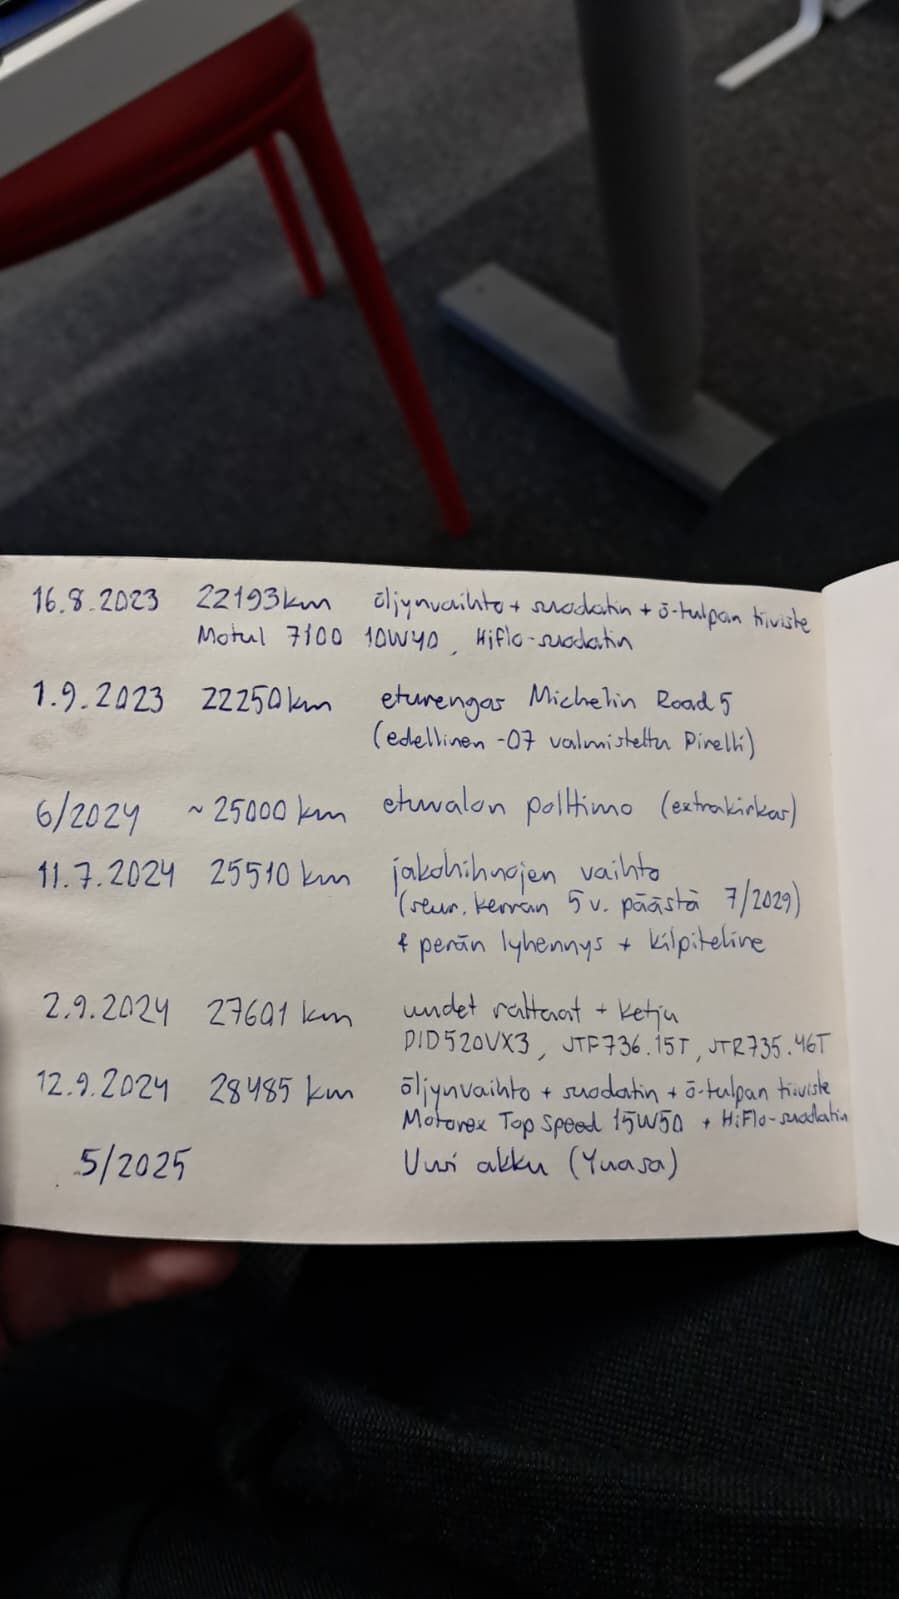 16.8.2023 22193km öljynvaihto + suodatin + ö-tulpan tiiviste
Motul 7100 10W40, Hiflo-suodatin
1.9.2023 22250km eturengas Michelin Road 5
(edellinen -07 valmistettu Pirelli)
6/2024 ~25000 km etuvalon polttimo (extrakirkas)
11.7.2024 25510 km jakohihnojen vaihto
(seur. kerran 5 v. päästä 7/2029)
& perän lyhennys + kilpiteline
2.9.2024 27601 km uudet rattaat + ketju
DID520VX3, JTF736.15T, JTR735.46T
12.9.2024 28485 km öljynvaihto + suodatin + ö-tulpan tiiviste
Motorex Top Speed 15W50 + HiFlo-suodatin
5/2025 Uusi akku (Yuasa)